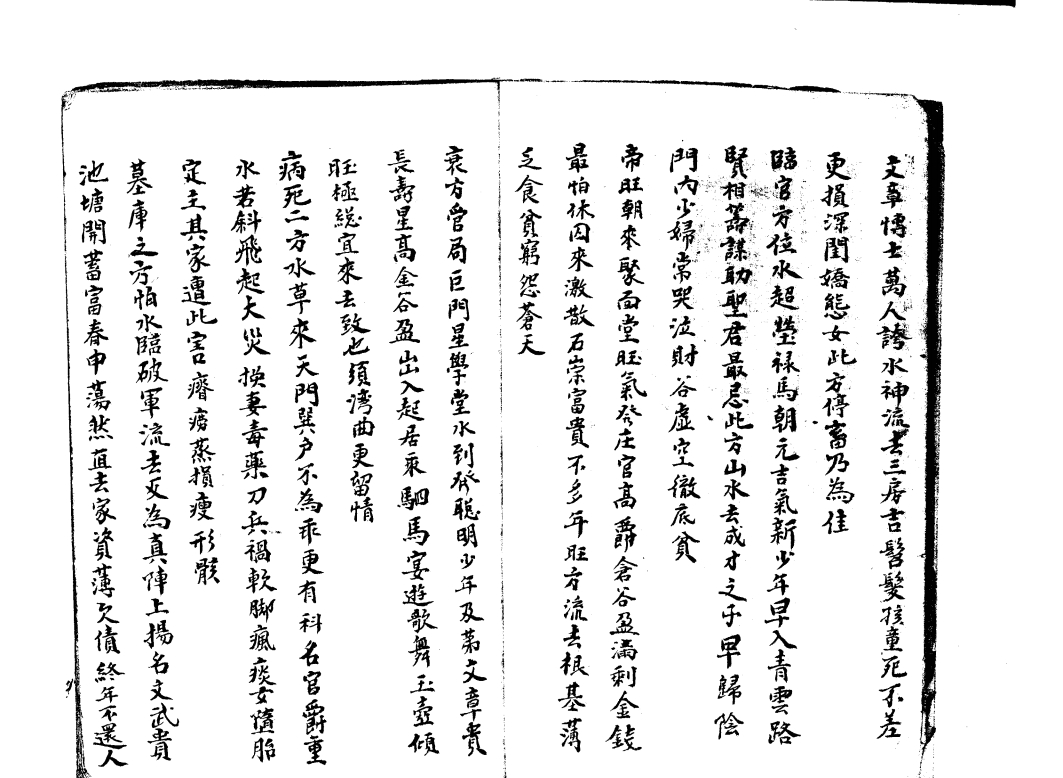 文章博士萬人誇水神流去三房吉髫髮孩童死不差
更損深閨嬌態女此方停畜乃為佳
臨官方位水超瑩祿馬朝元吉氣新少年早入青雲路
賢相籌謀助聖君最忌此方山水去成才之子早歸陰
門內少婦常哭泣財谷虛空徹底貧
帝旺朝來聚面堂旺氣發庄官高爵倉谷盈滿剩金錢
最怕休囚來激散石崇富貴不多年旺方流去根基薄
乏食貧窮怨蒼天
衰方管局巨門星學堂水到發聰明少年及第文章貴
長壽星高金谷盈出入起居乘駟馬宴遊歌舞玉壺傾
旺極總宜來去致也須湾曲更留情
病死二方水草來天門巽户不為乖更有科名官爵重
水若斜飛起大災換妻毒藥刀兵禍軟脚瘋痰女墮胎
定主其家遭此害癆瘵蒸損瘦形骸
墓庫之方怕水臨破軍流去反為真陣上揚名文武貴
池塘開蓄富春申蕩然直去家資薄欠債終年不還人